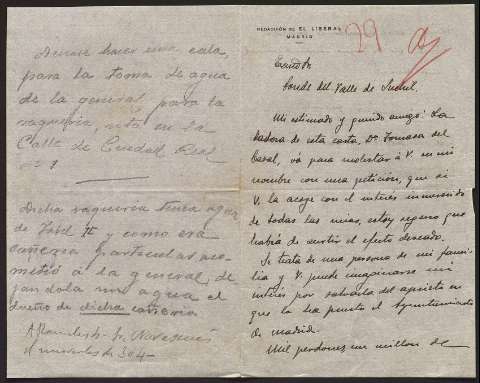 Desease hacer una cala,
para la toma de agua
de la general para la
vaqueria, sita en la
Calle de Ciudad Real
Dicha vaqueria tenia agua
de y como era
cañeria particular aco-
metió á la general, de-
jandola sin agua el
dueño de dicha cañeria
REDACCIÓN DE EL LIBERAL
MADRID
29
Conde del Valle de Suchil.
Mi estimado y querido amigo: La
dadora de esta carta, Dª Tomasa del
va para molestar á V. en mi
nombre con una petición, que si
V. la acoge con el interés inmerecido
de todas las mias, estoy seguro que
habia de surtir el efecto deseado.
Se trata de una persona de mi fami-
lia y V. puede imaginarse mi
interés por salvarla del aprieto en
que la ha puesto el Ayuntamiento
de Madrid.
Mil perdones un millon de